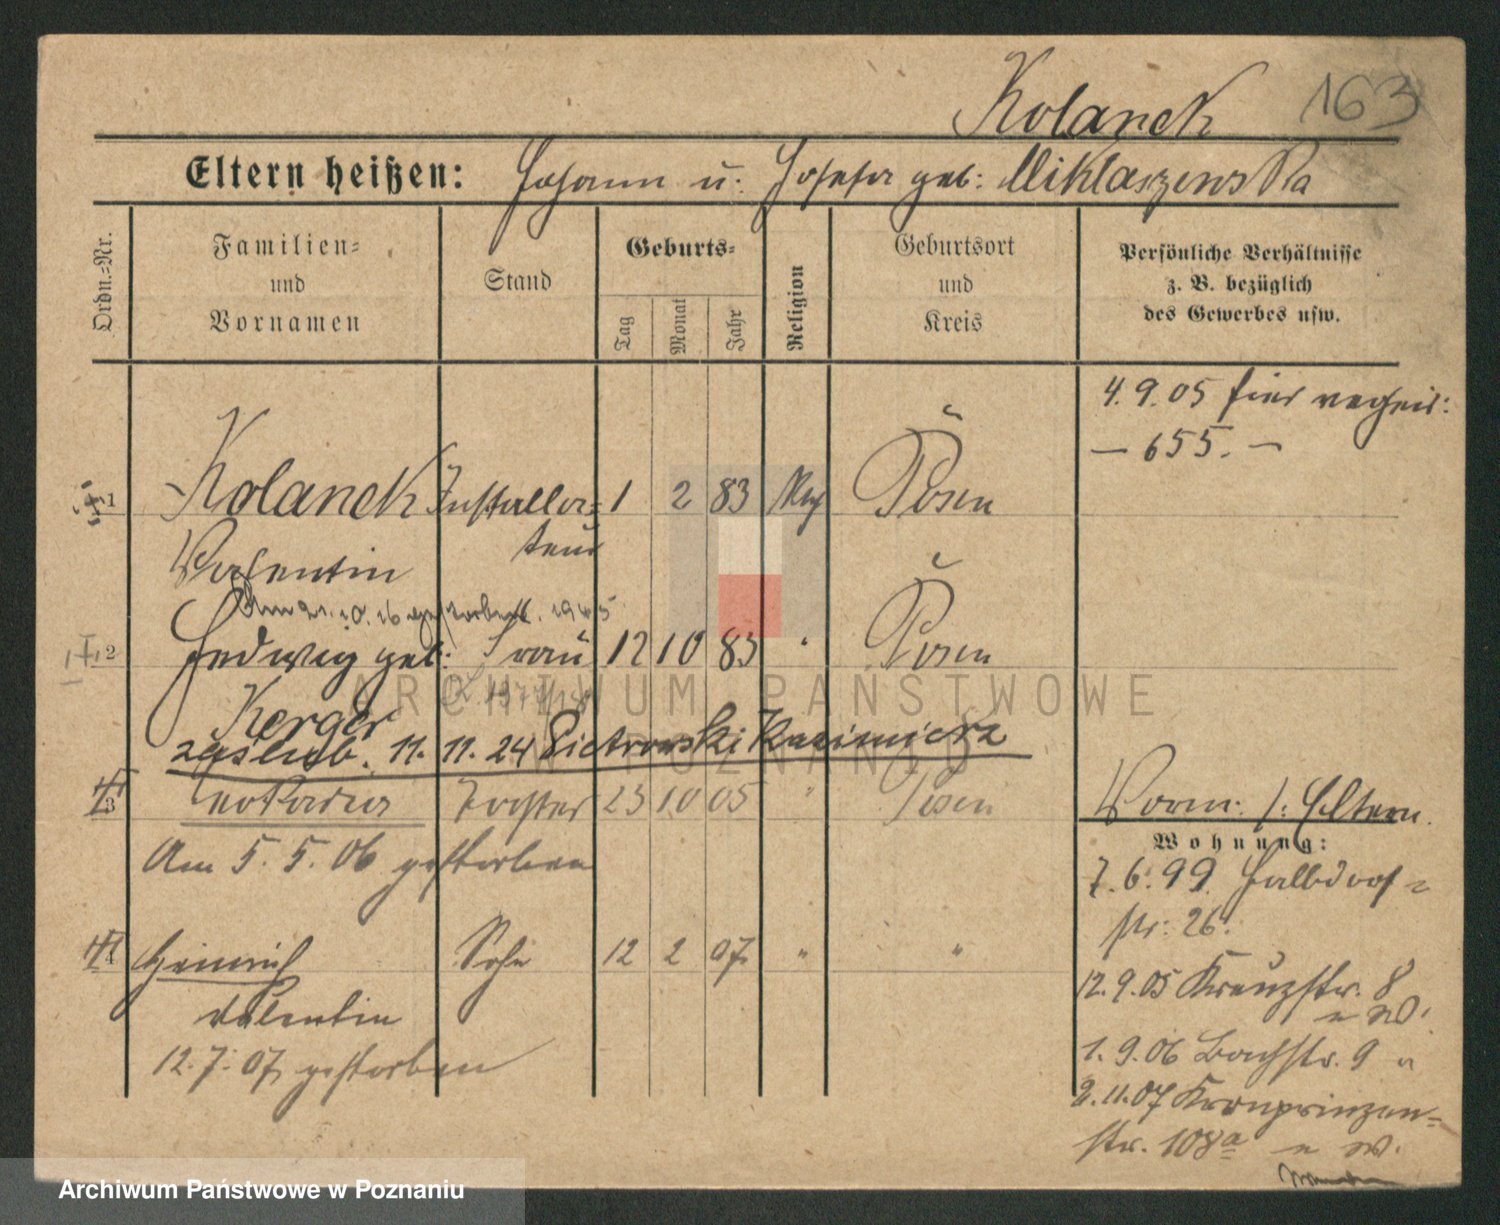 Kolanek 163
Eltern heißen: Johann u: Josefa geb: Miklaszewska
Ordn.-Nr.
Familien-
und
Vornamen
Stand
Geburts-
Tag
Monat
Jahr
Religion
Geburtsort
und
Kreis
Persönliche Verhältnisse
z. B. bezüglich
des Gewerbes usw.
4.9.05 hier
— 655. —
1 Kolanek Installa- 1 2 83 Posen
teur
Valentin
Am 21.10.16 gestorben
2 Hedwig geb: Frau 12 10 83 " Posen
Kerger
zaślub. 11.11.24 Pietrowski Kazimierz
3 Leokadia Tochter 23 10 05 " Posen
Am 5.5.06 gestorben
4 Heinrich Sohn 12 2 07. " "
Valentin
12.7.07 gestorben
Vorm: /: Eltern.
Wohnung:
7.6.99 Halbdorf-
str: 26.
12.9.05 Kreuzstr. 8
n W.
1.9.06 Bachstr. 9
2.11.07 Kronprinzen-
str. 108a n W.
ARCHIWUM PAŃSTWOWE
W POZNANIU
Archiwum Państwowe w Poznaniu